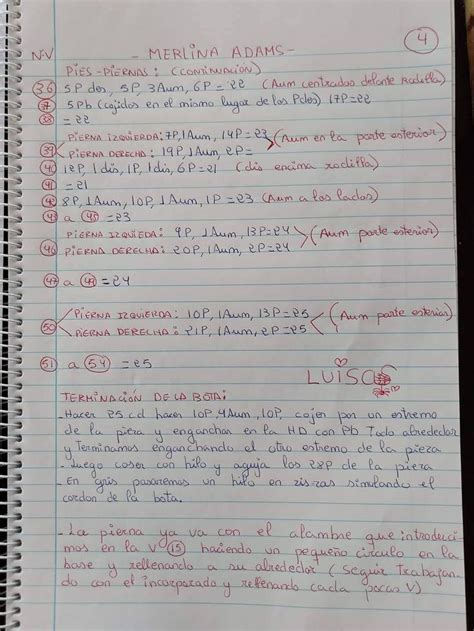 N-V - MERLINA ADAMS - 4
PIES - PIERNAS: (CONTINUACIÓN)
36 5P dos, 5P, 3Aum, 6P = 22 (Aum centrados delante Rodilla)
37 5Pb (cojidos en el mismo lugar de los Pdos) 17P=22
38 = 22
PIERNA IZQUIERDA: 7P, 1Aum, 14P = 23 (Aum en la parte exterior)
39 PIERNA DERECHA: 19P, 1Aum, 2P=
40 12P, 1dis, 1P, 1dis, 6P = 21 (dis encima rodilla)
41 = 21
42 8P, 1Aum, 10P, 1Aum, 1P = 23 (Aum a los lados)
43 a 45 = 23
PIERNA IZQUIEDA: 9P, 1Aum, 13P = 24 (Aum parte exterior)
46 PIERNA DERECHA: 20P, 1Aum, 2P = 24
47 a 49 = 24
PIERNA IZQUIERDA: 10P, 1Aum, 13P = 25 (Aum parte exterior)
50 PIERNA DERECHA: 21P, 1Aum, 2P = 25
51 a 54 = 25
LUISCS
TERMINACIÓN DE LA BOTA:
- Hacer 25 cd hacer 10P, 4Aum, 10P, cojer por un extremo
de la pieza y enganchar en la HD con Pb Todo alrededor
y Terminamos enganchando el otro extremo de la pieza
- Luego coser con hilo y aguja los 28P de la pieza
- En gris pasaremos un hilo en zis-zas simulando el
cordon de la bota.
- La pierna ya va con el alambre que introduci-
mos en la V 15 haciendo un pequeño circulo en la
base y rellenando a su alrededor (Seguir Trabajan-
do con el incorporado y rellenando cada pocas V)